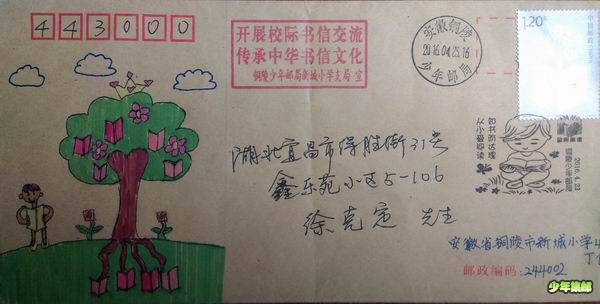 443000
开展校际书信交流
传承中华书信文化
铜陵少年邮局新城小学支局 宣
安徽铜陵
2016.04.23.16
少年邮局
1.20
中国邮政
湖北宜昌市得胜街31号
鑫东苑小区5-106
徐克定 先生
从小爱阅读
知书明达理
铜陵少年邮局
2016.4.23
安徽省铜陵市新城小学
邮政编码：244002
少年集邮